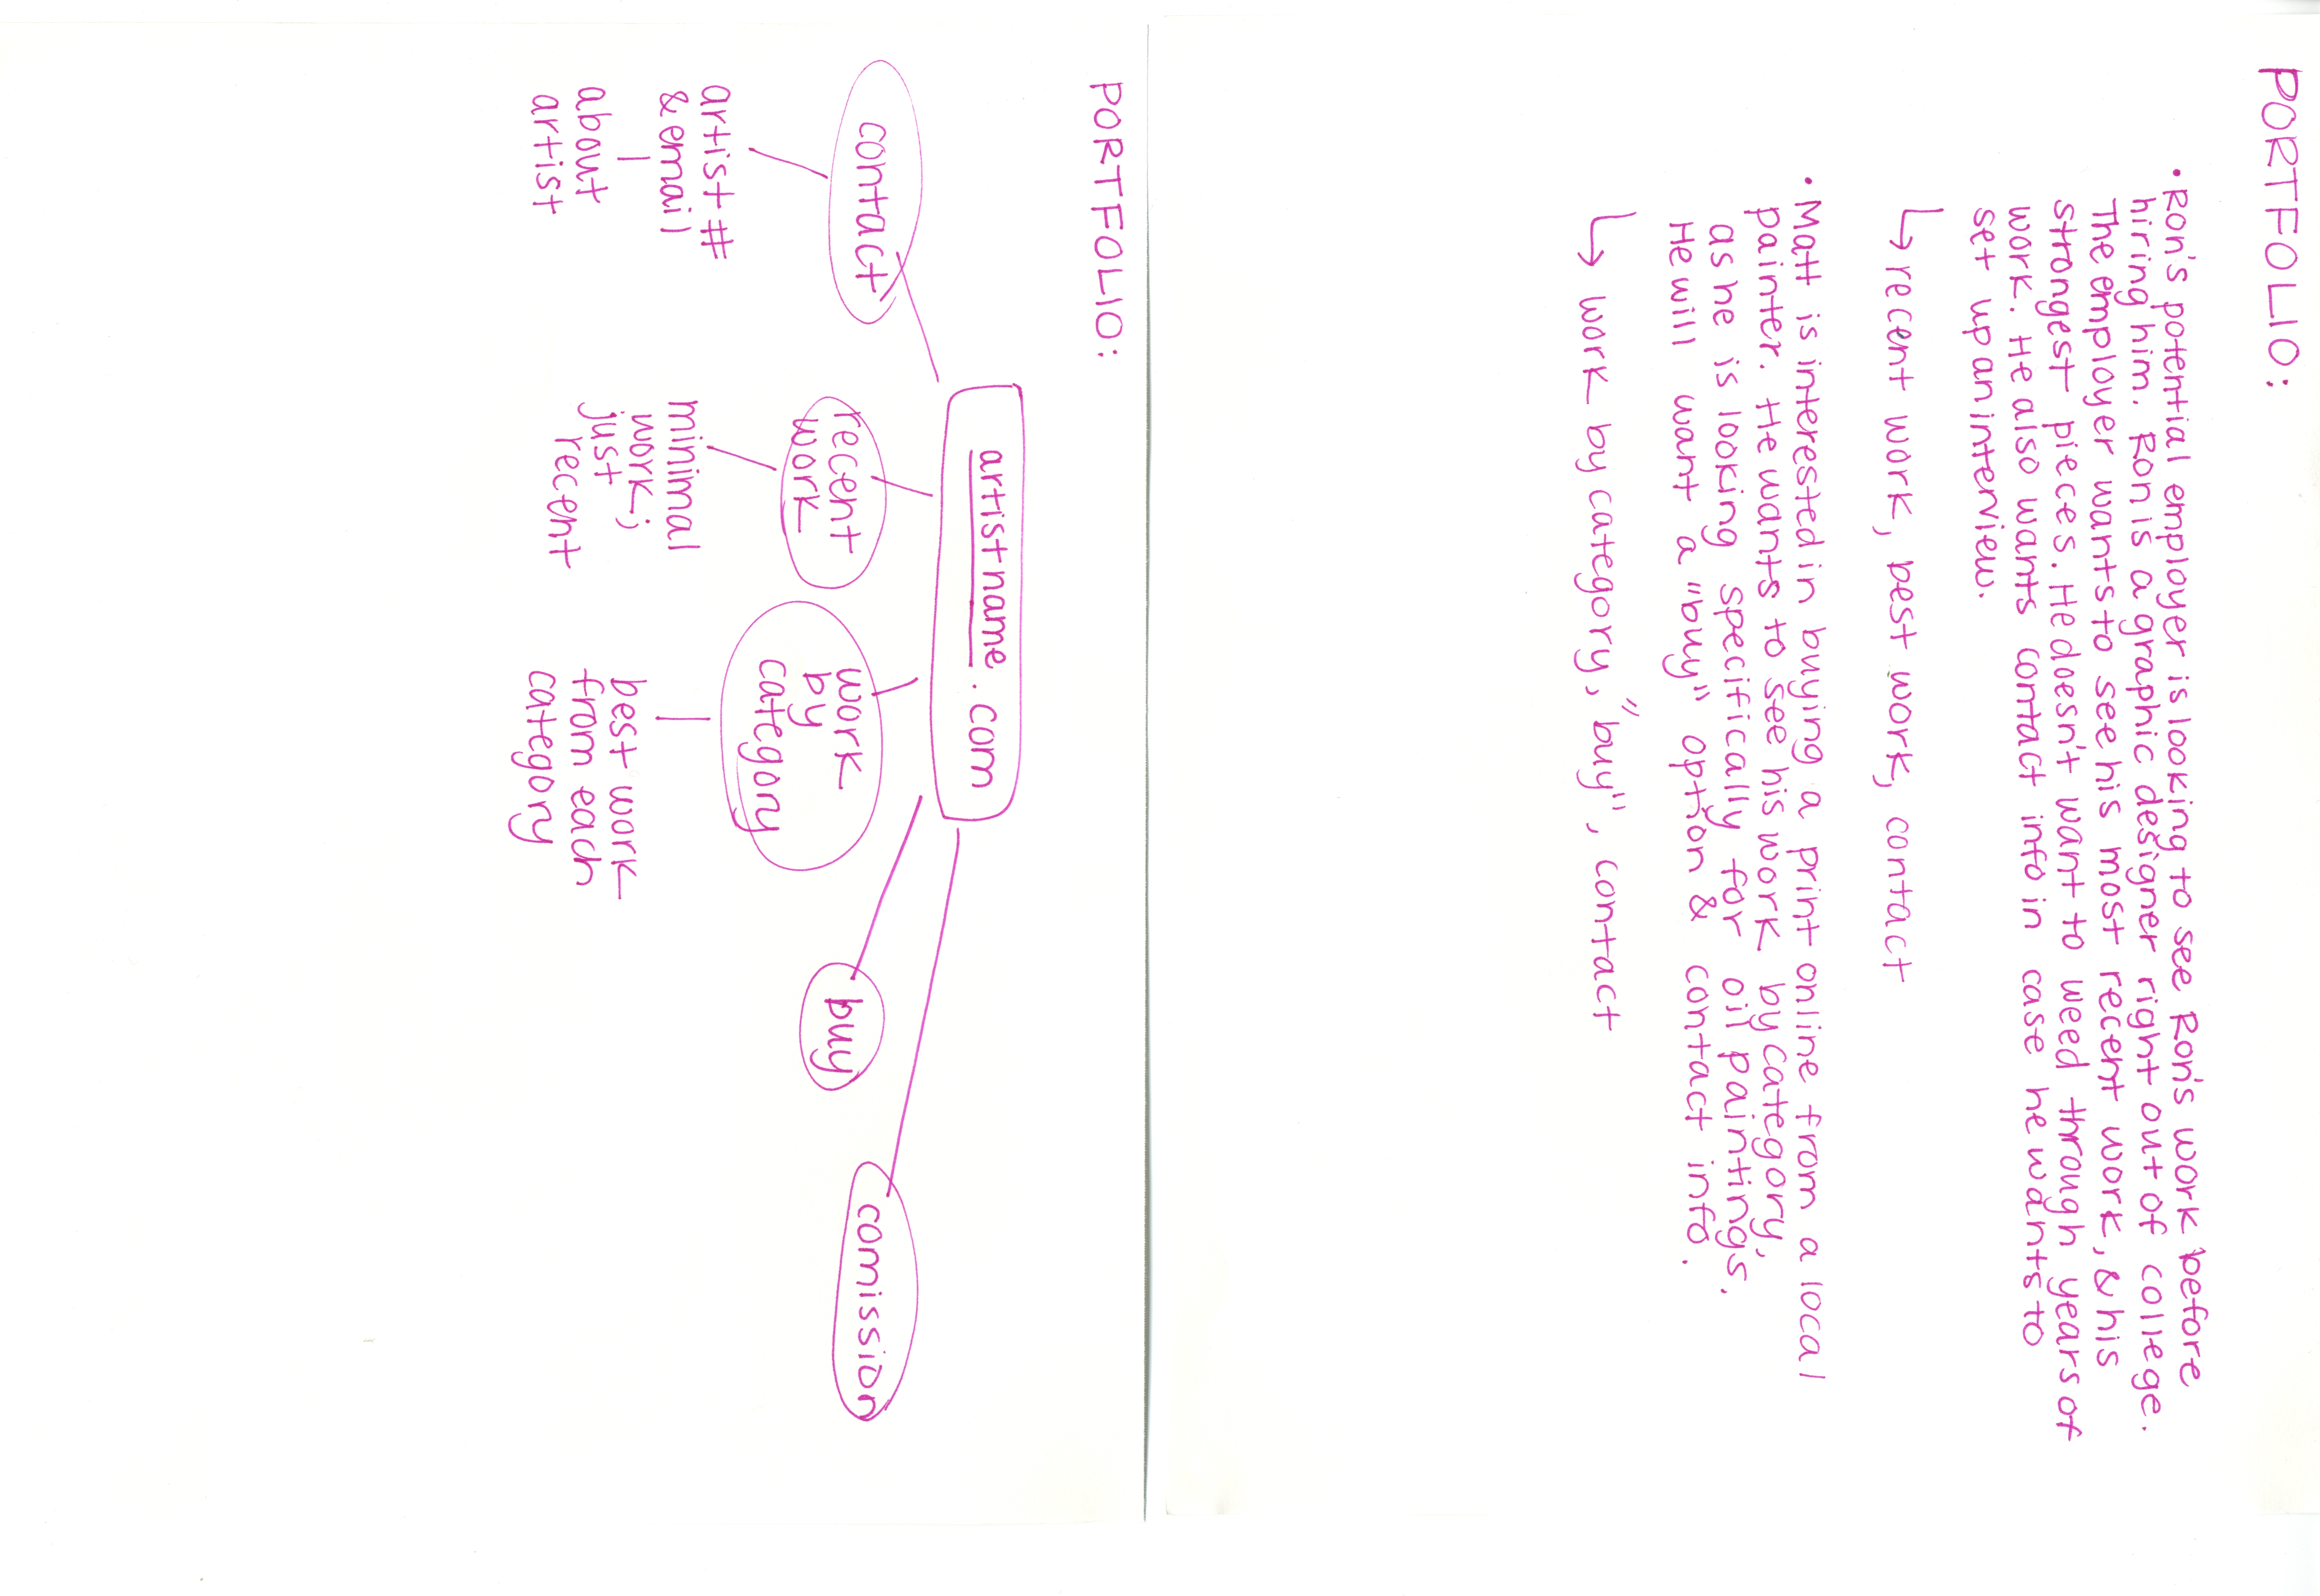 PORTFOLIO:
• Ron's potential employer is looking to see Ron's work before
hiring him. Ron is a graphic designer right out of college.
The employer wants to see his most recent work, & his
strongest pieces. He doesn't want to weed through years of
work. He also wants contact info in case he wants to
set up an interview.
↳ recent work, best work, contact
• Matt is interested in buying a print online from a local
painter. He wants to see his work by category,
as he is looking specifically for oil paintings.
He will want a "buy" option & contact info.
↳ work by category, "buy", contact
PORTFOLIO:
artistname.com
contact
artist #
& email
about
artist
recent
work
minimal
work;
just
recent
work
by
category
best work
from each
category
buy
comission